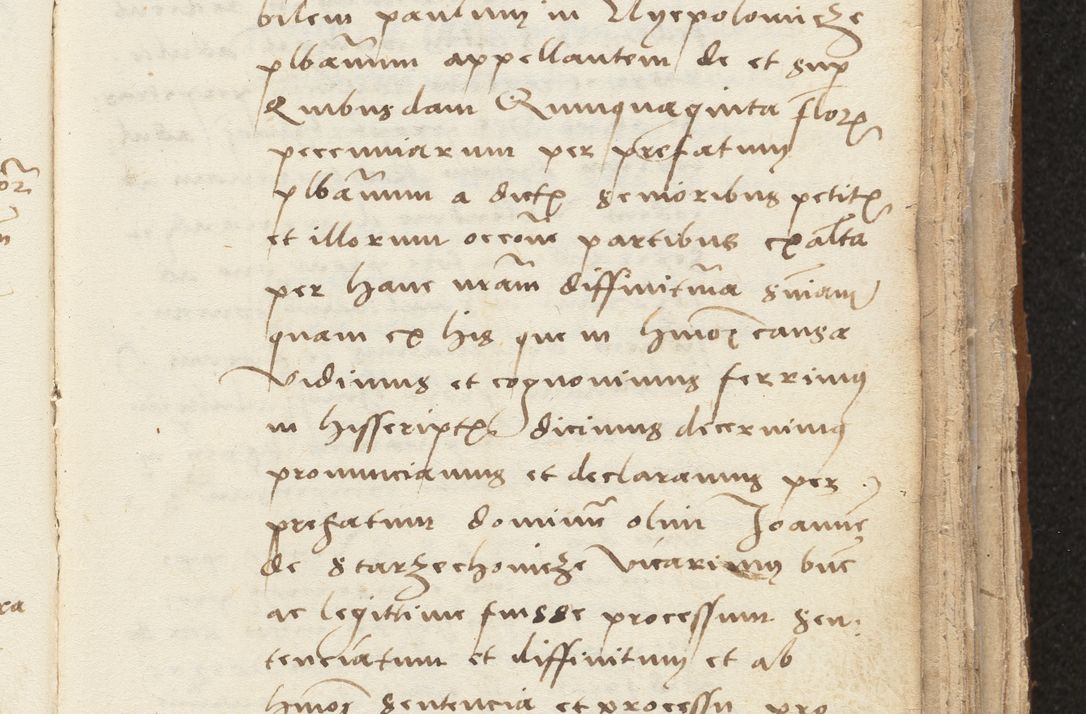 bilem paulum in Nyepolomicze
plbānum appellantem de et sup
Quibusdam Quinquaginta flor
peccuniarum per prefatum
plbānum a dict senioribus petit
et illorum occone partibus ex alta
per hanc nram diffinitīua sniam
quam ex his que in hmoi causa
vidimus et cognouimus ferrimus
in hisscript dicimus decernimus
pronunciamus et declaramus per
prefatum dominū olim Joannē
de Starzechowicze vicarium bñe
ac legittime fuisse processum sen
tenciatum et diffinitum et ab
hmoi sentencia et processu pro